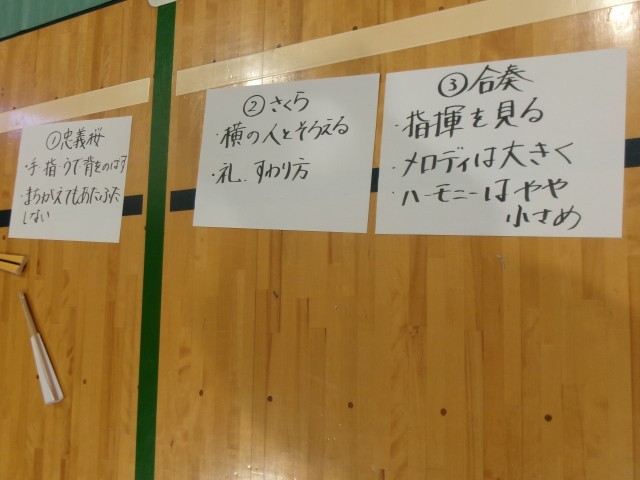 ①忠義桜
・手・指・うで・背をのばす
・まちがえてもあたふた
しない
②さくら
・横の人とそろえる
・礼、すわり方
③合奏
・指揮を見る
・メロディは大きく
・ハーモニーはやや
小さめ